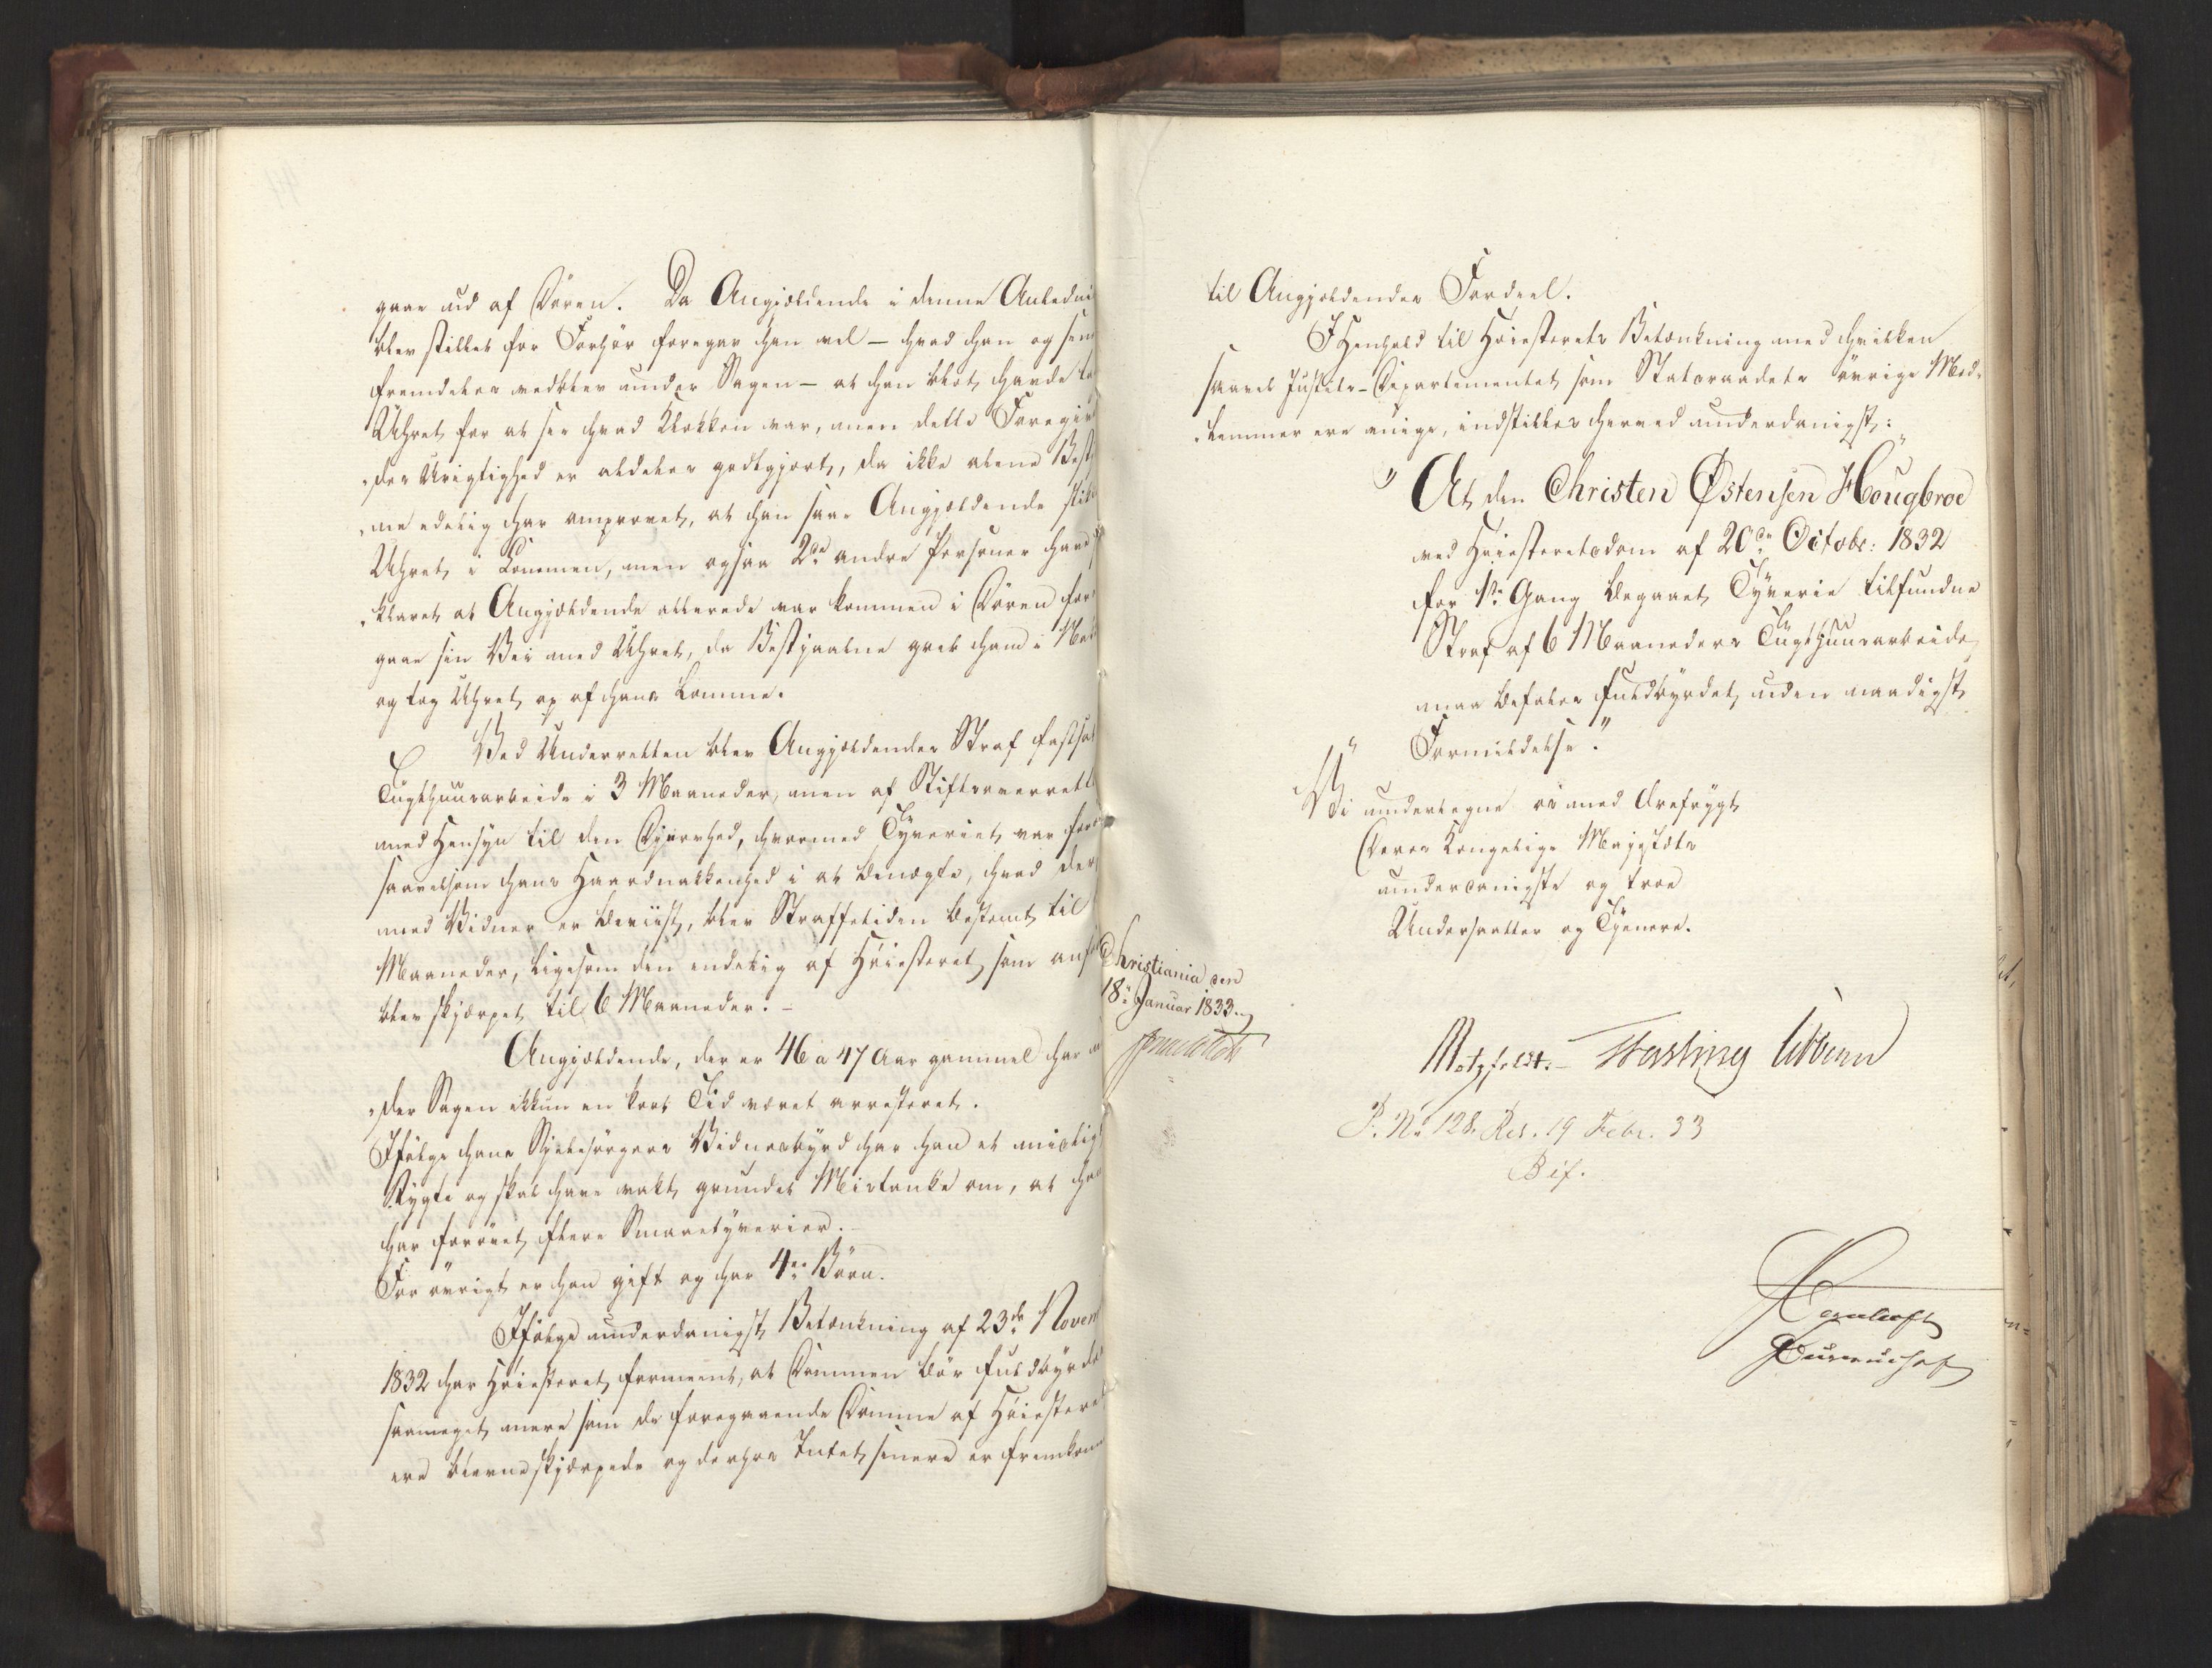 gaae ud af Døren. Da Angjældende i denne Anledni
blev stillet for Forhør foregav han vel – hvad han og sen
fremdeles vedblev under Sagen – at han blot havde ta
Uhret for at see hvad Klokken var, men dette Foregi
„des Urigtighed er aldeles godtgjort, da ikke alene Bestj
„ne edelig har anprovet, at han saae Angjældende stikk
Uhret i Lommen, men ogsaa 2de andre Personer have
„klaret at Angjældende allerede var kommen i Døren for
gaae sin Vei med Uhret, da Bestjaalne greb ham i
og tog Uhret op af hans Lomme.
Ved Underretten blev Angjældendes Straf fastsat
Tugthuusarbeide i 3 Maaneder, men af Stiftsoverrett
med Hensyn til den Djærvhed, hvormed Tyveriet var for
saavelsom hans Haardnakkenhed i at benægte, hvad der
med Vidner er beviist, blev Straffetiden bestemt til
Maaneder, ligesom den endelig af Høiesteret, som anf
blev skjærpet til 6 Maaneder. –
Angjældende, der er 46 a 47 Aar gammel har
„der Sagen ikkun en kort Tid været arresteret.
Ifølge hans Sjelesørgers Vidnesbyrd har han et misligt
Rygte og skal have vakt grundet Mistanke om, at han
har forøvet flere Smaaetyverier. –
For øvrigt er han gift og har 4re Børn.
Ifølge underdanigst Betænkning af 23de Novem
1832 har Høiesteret formeent, at Dommen bør fuldbyrdes
saameget mere som de foregaaende Domme af Høiesteret
ere blevne skjærpede og derhos Intet senere er fremkom
til Angjældendes Fordeel.
I Henhold til Høiesterets Betænkning med hvilken
saavel Justits-Departementet som Statsraadets øvrige Med„
„lemmer ere enige, indstilles herved underdanigst:
„At den Christen Østensen Hougbroe
ved Høiesteretsdom af 20de Octobr: 1832
for 1ste Gang begaaet Tyverie tilfundne
Straf af 6 Maaneders Tugthuusarbeide
maa befales fuldbyrdet uden naadigst
Formildelse."
Vi undertegne os med Ærefrygt
Deres Kongelige Majestæts
underdanigste og troe
Undersaatter og Tjenere.
Christiania den
18de Januar 1833.
Motzfeldt. – Fasting
P. No 128. Res. 19 Febr. 33
Bif.